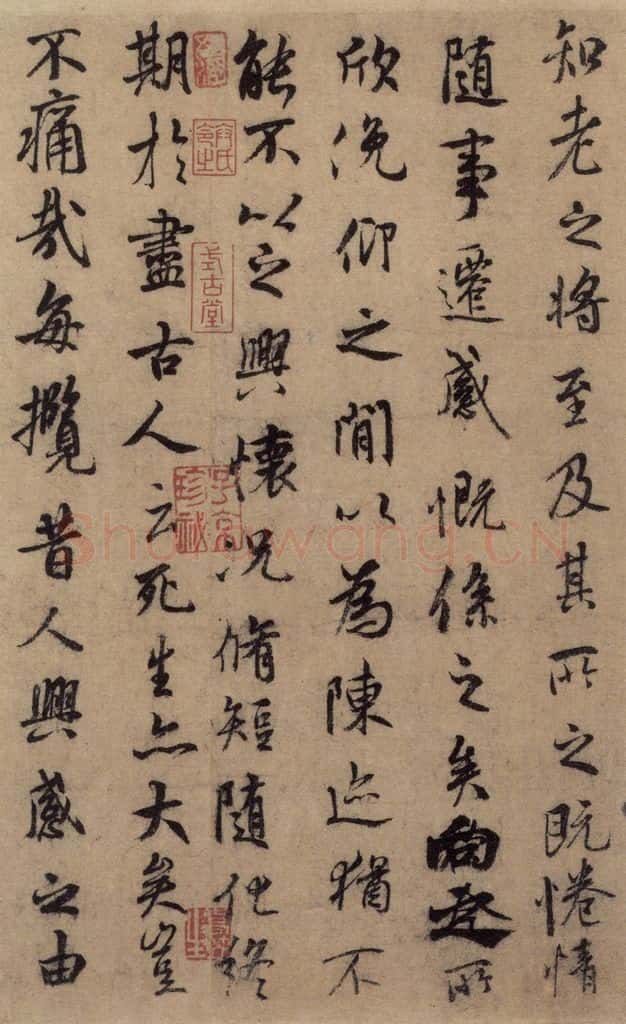 知老之将至及其所之既惓情
随事遷感慨係之矣向之所
欣俛仰之間以為陳迹猶不
能不以之興懷况脩短随化終
期於盡古人云死生亦大矣豈
不痛哉每攬昔人興感之由
式古堂
子京
珍秘
Shufawang.CN